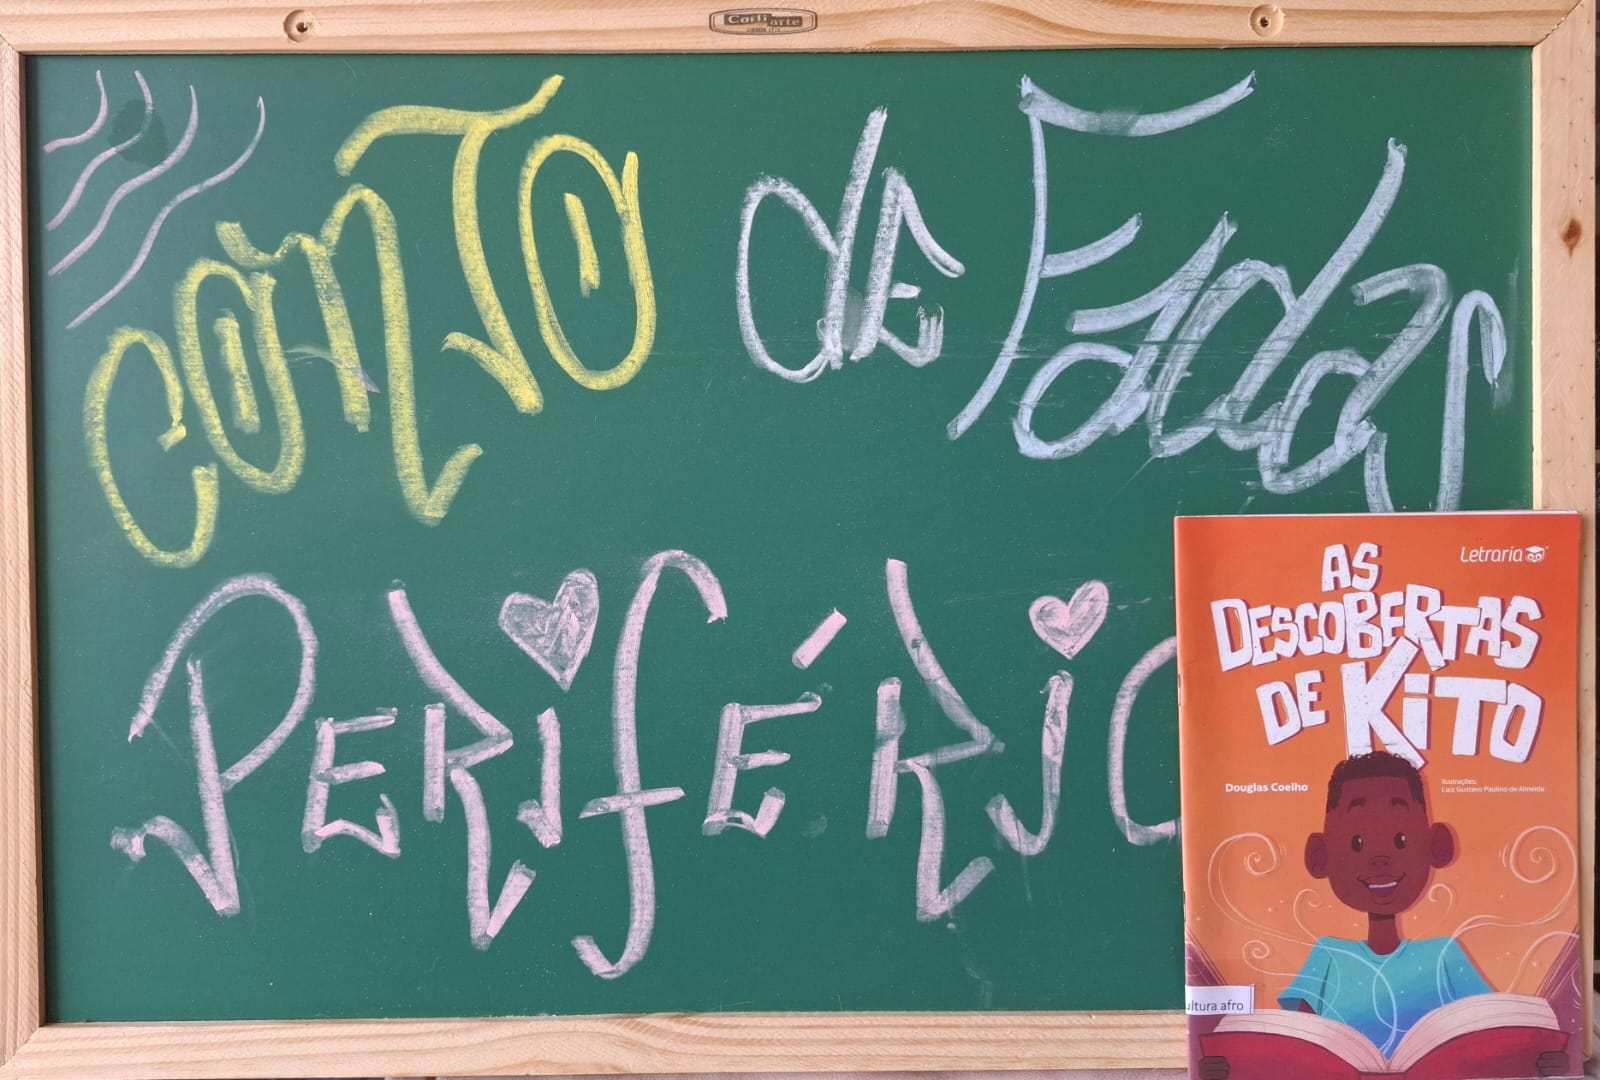 Corti arte
Conto de Fadas
Periféric
Letraria
AS
DESCOBERTAS
DE KiTO
Douglas Coelho
Ilustrações:
Luiz Gustavo Paulino de Almeida
ultura afro